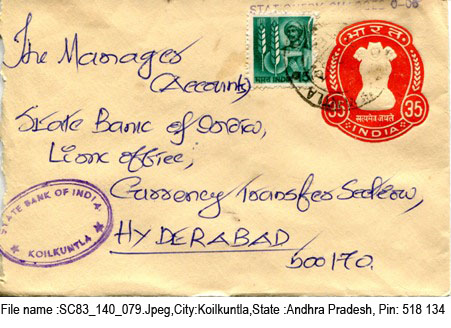 STATIONERY CHARGES 0-06
भारत
35 35
सत्यमेव जयते
INDIA
भारत INDIA
The Manager
(Accounts)
State Bank of India,
Lionc office,
Currency Transfer Section,
HYDERABAD
500170.
STATE BANK OF INDIA
KOILKUNTLA
File name :SC83_140_079.Jpeg,City:Koilkuntla,State :Andhra Pradesh, Pin: 518 134